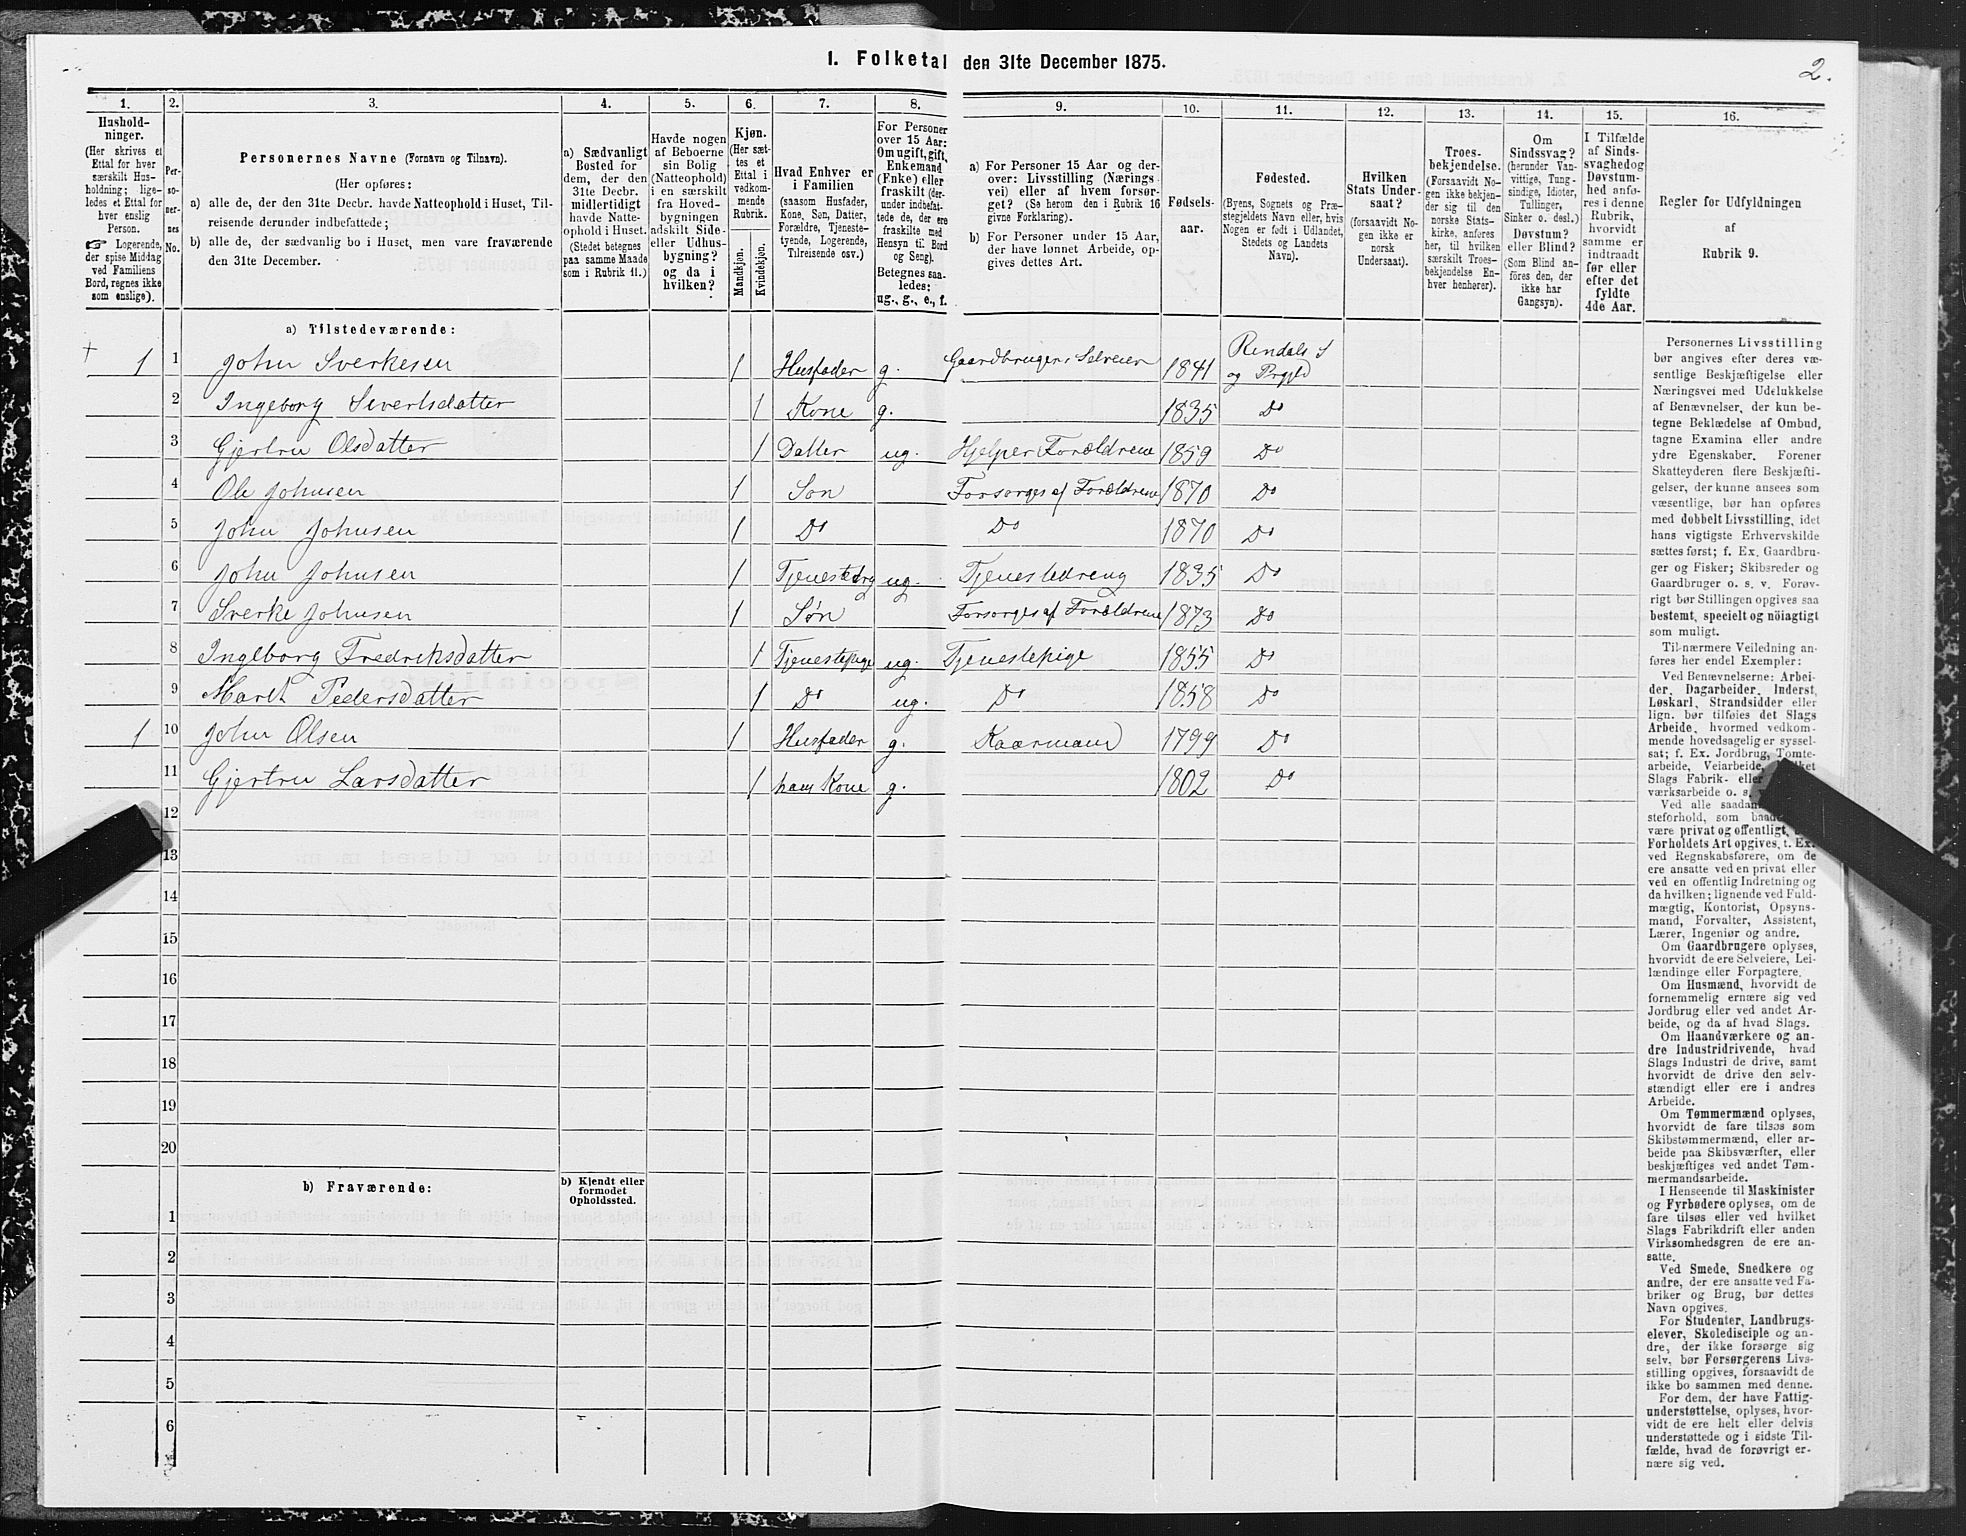 I. Folketal den 31te December 1875.
2.
1. 2. 3. 4. 5. 6. 7. 8. 9. 10. 11. 12. 13. 14. 15. 16.
Hushold-
ninger.
(Her skrives et
Ettal for hver
særskilt Hus-
holdning; lige-
ledes et Ettal for
hver enslig
Person.
☞ Logerende,
der spise Middag
ved Familiens
Bord, regnes ikke
som enslige).
Per-
so-
ner-
nes
No.
Personernes Navne (Fornavn og Tilnavn).
(Her opføres:
a) alle de, der den 31te Decbr. havde Natteophold i Huset, Til-
reisende derunder indbefattede;
b) alle de, der sædvanlig bo i Huset, men vare fraværende
den 31te December.
a) Sædvanligt
Bosted for
dem, der den
31te Decbr.
midlertidigt
havde Natte-
ophold i Huset.
(Stedet betegnes
paa samme Maade
som i Rubrik 11.)
Havde nogen
af Beboerne
sin Bolig
(Natteophold)
i en særskilt
fra Hoved-
bygningen
adskilt Side-
eller Udhus-
bygning?
og da i
hvilken?
Kjøn.
(Her sæt-
tes et
Ettal i
vedkom-
mende
Rubrik.
Mandkjøn.
Kvindekjøn.
Hvad Enhver er
i Familien
(saasom Husfader,
Kone, Søn, Datter,
Forældre, Tjeneste-
tyende, Logerende,
Tilreisende osv.)
For Personer
over 15 Aar:
Om ugift, gift,
Enkemand
(Enke) eller
fraskilt (der-
under indbefat-
tede de, der ere
fraskilte med
Hensyn til Bord
og Seng).
Betegnes saa-
ledes:
ug., g., e., f.
a) For Personer 15 Aar og der-
over: Livsstilling (Nærings-
vei) eller af hvem forsør-
get? (Se herom den i Rubrik 16
givne Forklaring).
b) For Personer under 15 Aar,
der have lønnet Arbeide, op-
gives dettes Art.
Fødsels-
aar.
Fødested.
(Byens, Sognets og Præ-
stegjeldets Navn eller, hvis
Nogen er født i Udlandet,
Stedets og Landets
Navn).
Hvilken
Stats Under-
saat?
(forsaavidt No-
gen ikke er
norsk
Undersaat).
Troes-
bekjendelse.
(Forsaavidt No-
gen ikke bekjen-
der sig til den
norske Stats-
kirke, anføres
her, til hvilken
særskilt Troes-
bekjendelse En-
hver henhører).
Om
Sindssvag?
(herunder Van-
vittige, Tung-
sindige, Idioter,
Tullinger,
Sinker o. desl.)
Døvstum?
eller Blind?
(Som Blind an-
føres den, der
ikke har
Gangsyn).
I Tilfælde
af Sinds-
svaghed og
Døvstum-
hed anfø-
res i denne
Rubrik,
hvorvidt
samme er
indtraadt
før eller
efter det
fyldte
4de Aar.
Regler for Udfyldningen
af
Rubrik 9.
a) Tilstedeværende:
1 1 John Sverkesen 1 Husfader g. Gaardbruger, Selveier 1841 Rendals S
og Prgjld
2 Ingeborg Sivertsdatter 1 Kone g. 1835 Do
3 Gjertru Olsdatter 1 Datter ug. Hjelper Forældrene 1859 Do
4 Ole Johnsen 1 Søn Forsørges af Forældrene 1870 Do
5 John Johnsen 1 Do Do 1870 Do
6 John Johnsen 1 Tjenestedrg ug. Tjenestedreng 1835 Do
7 Sverke Johnsen 1 Søn Forsørges af Forældrene 1873 Do
8 Ingeborg Fredriksdatter 1 Tjenestepige ug. Tjenestepige 1855 Do
9 Marit Pedersdatter 1 Do ug. Do 1858 Do
1 10 John Olsen 1 Husfader g. Kaarmand 1799 Do
11 Gjertru Larsdatter 1 hans Kone g. 1802 Do
12
13
14
15
16
17
18
19
20
b) Fraværende:
b) Kjendt eller
formodet
Opholdssted.
1
2
3
4
5
6
Personernes Livsstilling
bør angives efter deres væ-
sentlige Beskjæftigelse eller
Næringsvei med Udelukkelse
af Benævnelser, der kun be-
tegne Beklædelse af Ombud,
tagne Examina eller andre
ydre Egenskaber. Forener
Skatteyderen flere Beskjæfti-
gelser, der kunne ansees som
væsentlige, bør han opføres
med dobbelt Livsstilling, idet
hans vigtigste Erhvervskilde
sættes først; f. Ex. Gaardbru-
ger og Fisker; Skibsreder og
Gaardbruger o. s. v. Forøv-
rigt bør Stillingen opgives saa
bestemt, specielt og nöiagtigt
som muligt.
Til nærmere Veiledning an-
føres her endel Exempler:
Ved Benævnelserne: Arbei-
der, Dagarbeider, Inderst,
Løskarl, Strandsidder eller
lign. bør tilføies det Slags
Arbeide, hvormed vedkom-
mende hovedsagelig er syssel-
sat; f. Ex. Jordbrug, Tomte-
arbeide, Veiarbeide,
Slags Fabrik- eller
værksarbeide o. s.
Ved alle
steforhold, som
være privat og offentligt,
Forholdets Art opgives, f. Ex.
ved Regnskabsførere, om de
ere ansatte ved en privat eller
ved en offentlig Indretning og
da hvilken; lignende ved Fuld-
mægtig, Kontorist, Opsyns-
mand, Forvalter, Assistent,
Lærer, Ingeniør og andre.
Om Gaardbrugere oplyses,
hvorvidt de ere Selveiere, Lei-
lændinge eller Forpagtere.
Om Husmænd, hvorvidt de
fornemmelig ernære sig ved
Jordbrug eller ved andet Ar-
beide, og da af hvad Slags.
Om Haandværkere og an-
dre Industridrivende, hvad
Slags Industri de drive, samt
hvorvidt de drive den selv-
stændigt eller ere i andres
Arbeide.
Om Tømmermænd oplyses,
hvorvidt de fare tilsøs som
Skibstømmermænd, eller ar-
beide paa Skibsværfter, eller
beskjæftiges ved andet Tøm-
mermandsarbeide.
I Henseende til Maskinister
og Fyrbødere oplyses, om de
fare tilsøs eller ved hvilket
Slags Fabrikdrift eller anden
Virksomhedsgren de ere an-
satte.
Ved Smede, Snedkere og
andre, der ere ansatte ved Fa-
briker og Brug, bør dettes
Navn opgives.
For Studenter, Landbrugs-
elever, Skoledisciple og an-
dre, der ikke forsørge sig
selv, bør Forsørgerens Livs-
stilling opgives, forsaavidt de
ikke bo sammen med denne.
For dem, der have Fattig-
understøttelse, oplyses, hvor-
vidt de ere helt eller delvis
understøttede og i sidste Til-
fælde, hvad de forøvrigt er-
nære sig ved.